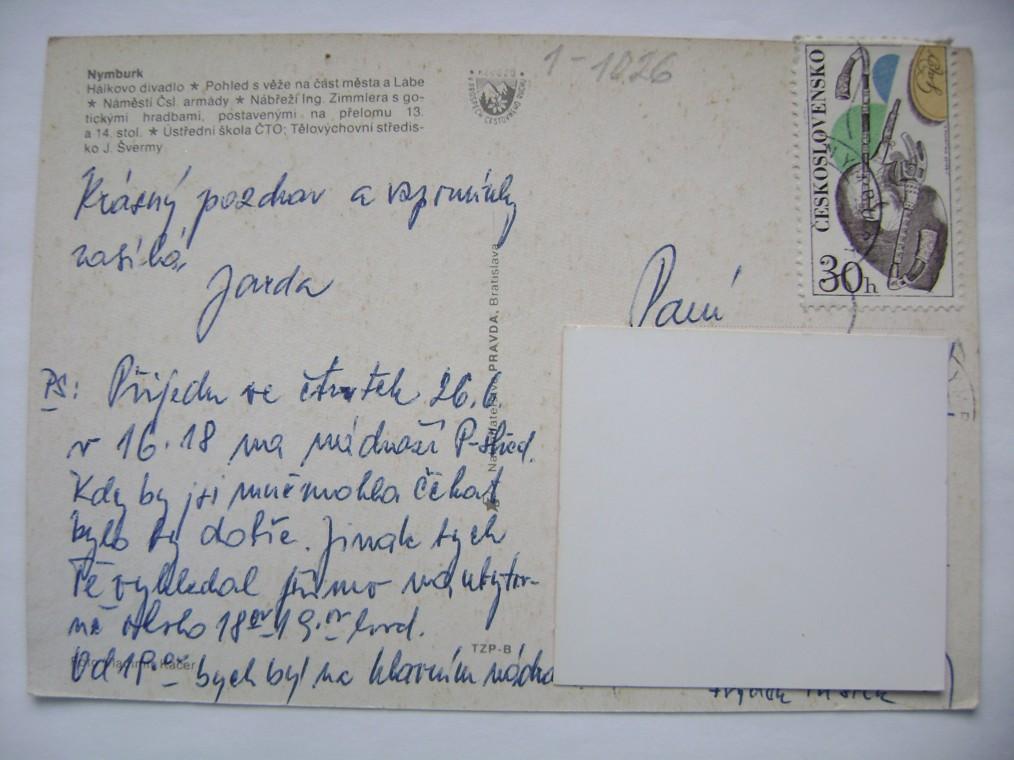 Nymburk
Hálkovo divadlo ★ Pohled s věže na část města a Labe
★ Náměstí Čsl. armády ★ Nábřeží Ing. Zimmlera s go-
tickými hradbami, postavenými na přelomu 13.
a 14. stol. ★ Ústřední škola ČTO; Tělovýchovní středis-
ko J. Švermy
1-1026
ČESKOSLOVENSKO
30h
Krásný pozdrav a vzpomínky
zasílá
Jarda
Paní
PRAVDA, Bratislava
PS: Přijedu ve čtvrtek 26.6
v 16.18 na nádraží P-střed.
Kdy by jsi mně mohla čekat
bylo by dobře. Jinak bych
Tě vyhledal přímo na ubytov-
ně okolo 18 19. hod.
TZP-B
Od bych byl na hlavním nádra